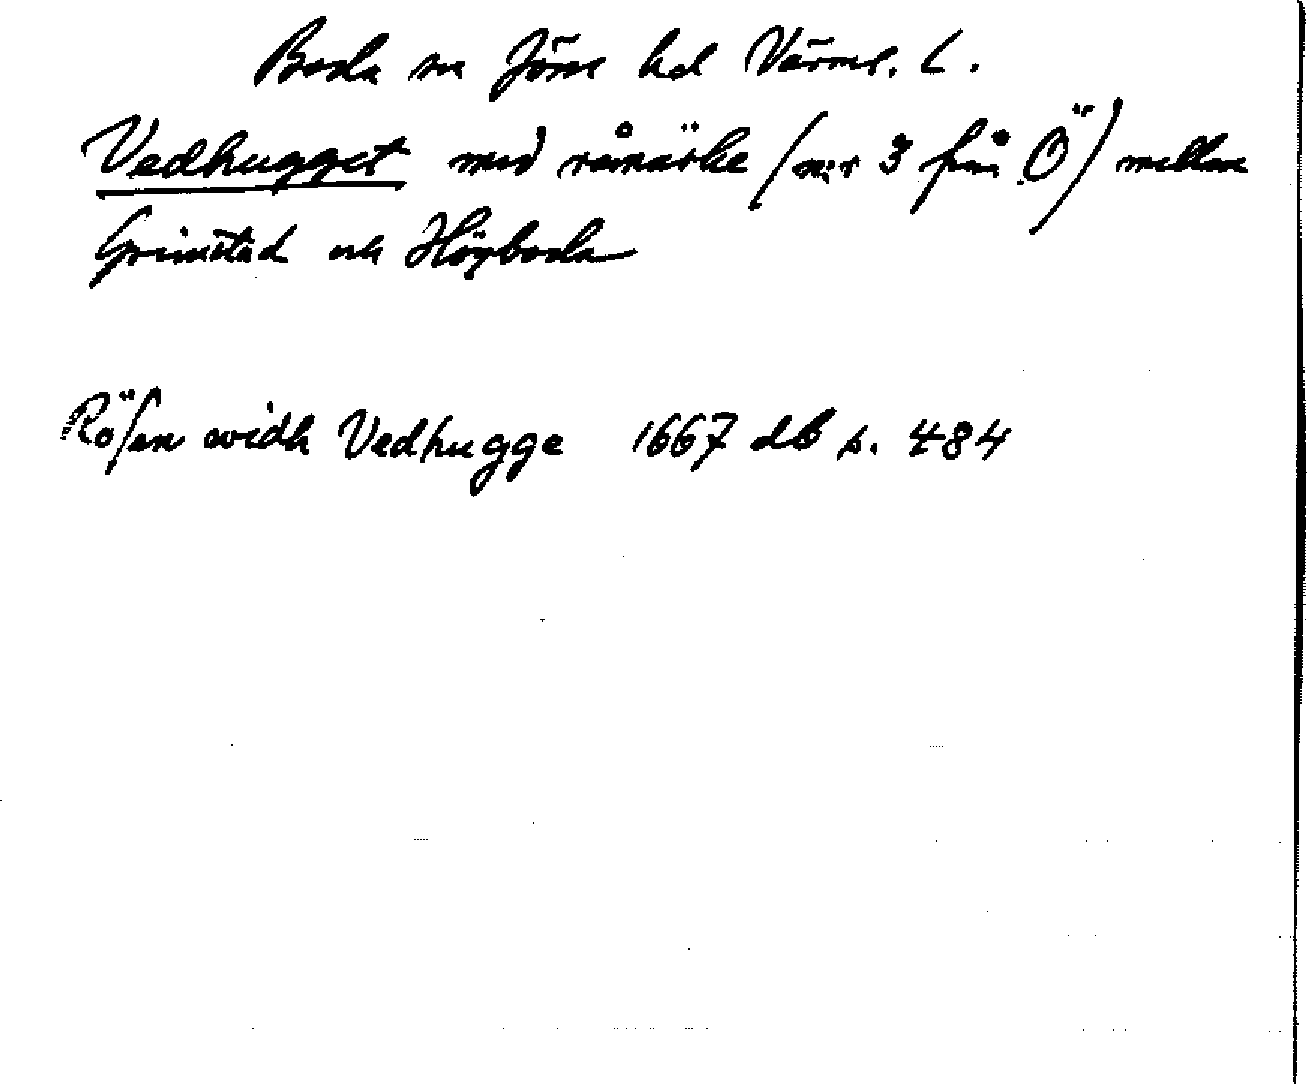 Boda sn Jösse hd Värml. L.
Vedhugget med råmärke (nr 3 från Ö) mellan
Grimstad och Högboda
Rösen widh Vedhugge 1667 db s. 484